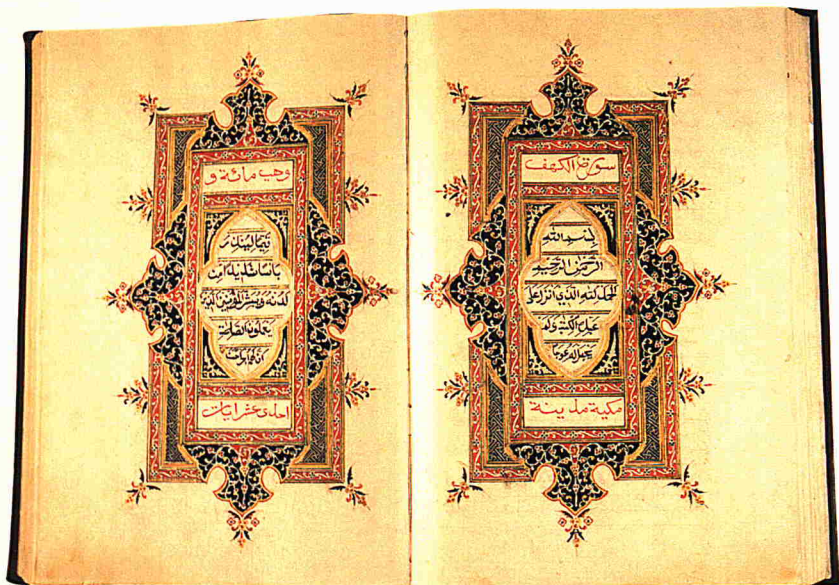 سورة الكهف
بسم الله
الرحمن الرحيم
الحمد لله الذي انزل على
عبده الكتب ولم
يجعل له عوجا
مكية مدينة
وهي مائة و
قيما لينذر
باسا شديدا من
لدنه ويبشر المؤمنين الذين
يعملون الصلحت
ان لهم
احدى عشر ايات